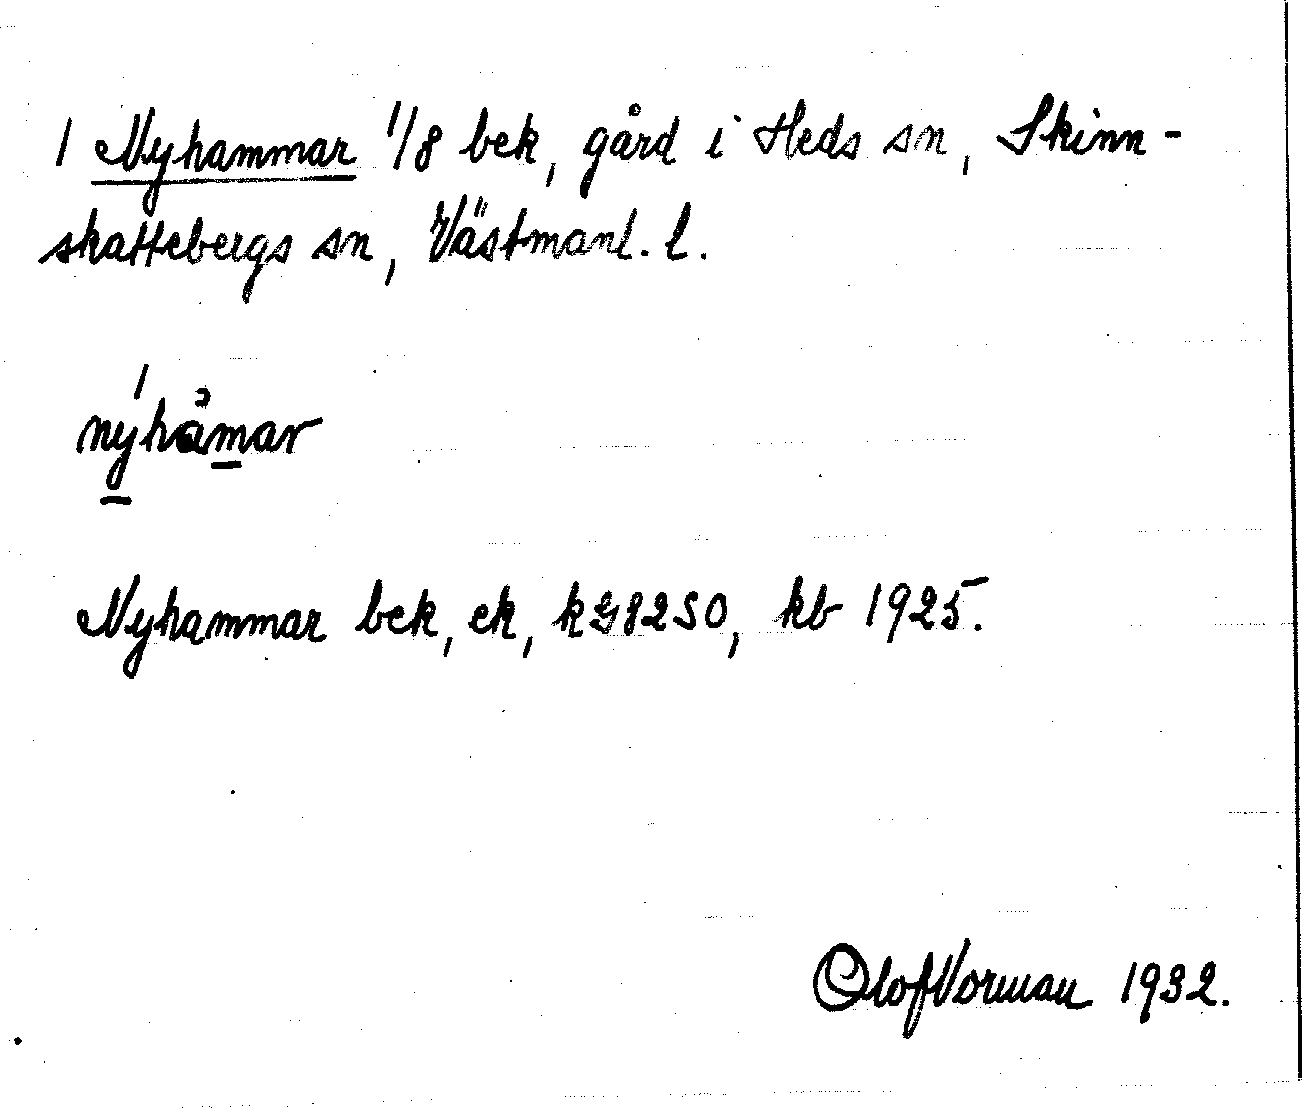 1 Nyhammar 1/8 bek, gård i Heds sn, Skinn-
skattebergs sn, Västmanl. l.
nýhåmar
Nyhammar bek, ek, kG8250, kb 1925.
Olof Vorman 1932.